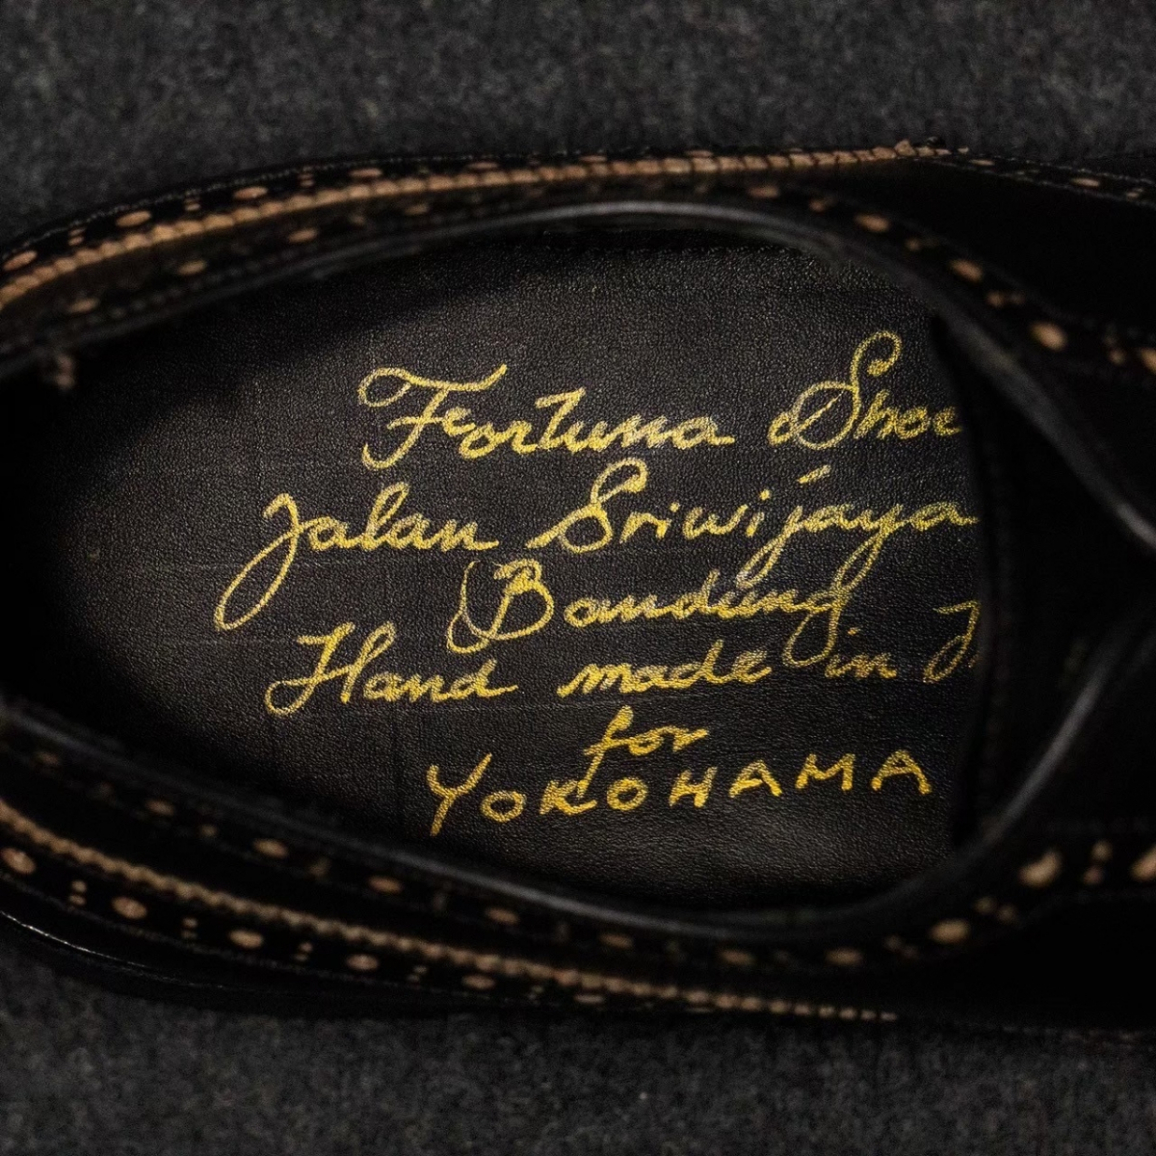 Fortuna Shoe
Jalan Sriwijaya
Bandung
Hand made in
for
YOKOHAMA